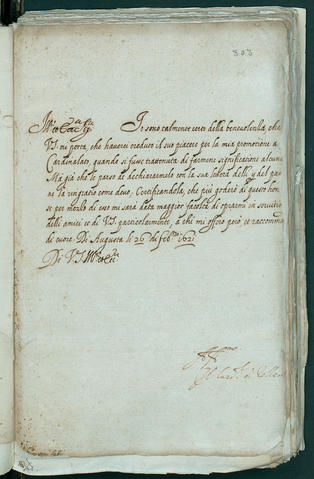 303
Io sono talmente certo della benevolenza, che
V.S. mi porta, che haverei creduto il suo piacere per la mia promotione al
Cardinalato, quando si fusse trattenuta di farmene significatione alcuna
Ma già che le è parso di dichiararmelo con la sua lettera delli del pas.
ne la ringratio come devo, Certificandola, che più goderò di questo hono
se per mezzo di esso mi sarà data maggior facoltà di oprarmi in servitio
delli amici et di V.S. particolarmente, à chi mi offero però et raccommando
di cuore. Di Augusta li 26 di feb.ro 1621
Di V.S.
Il Card.